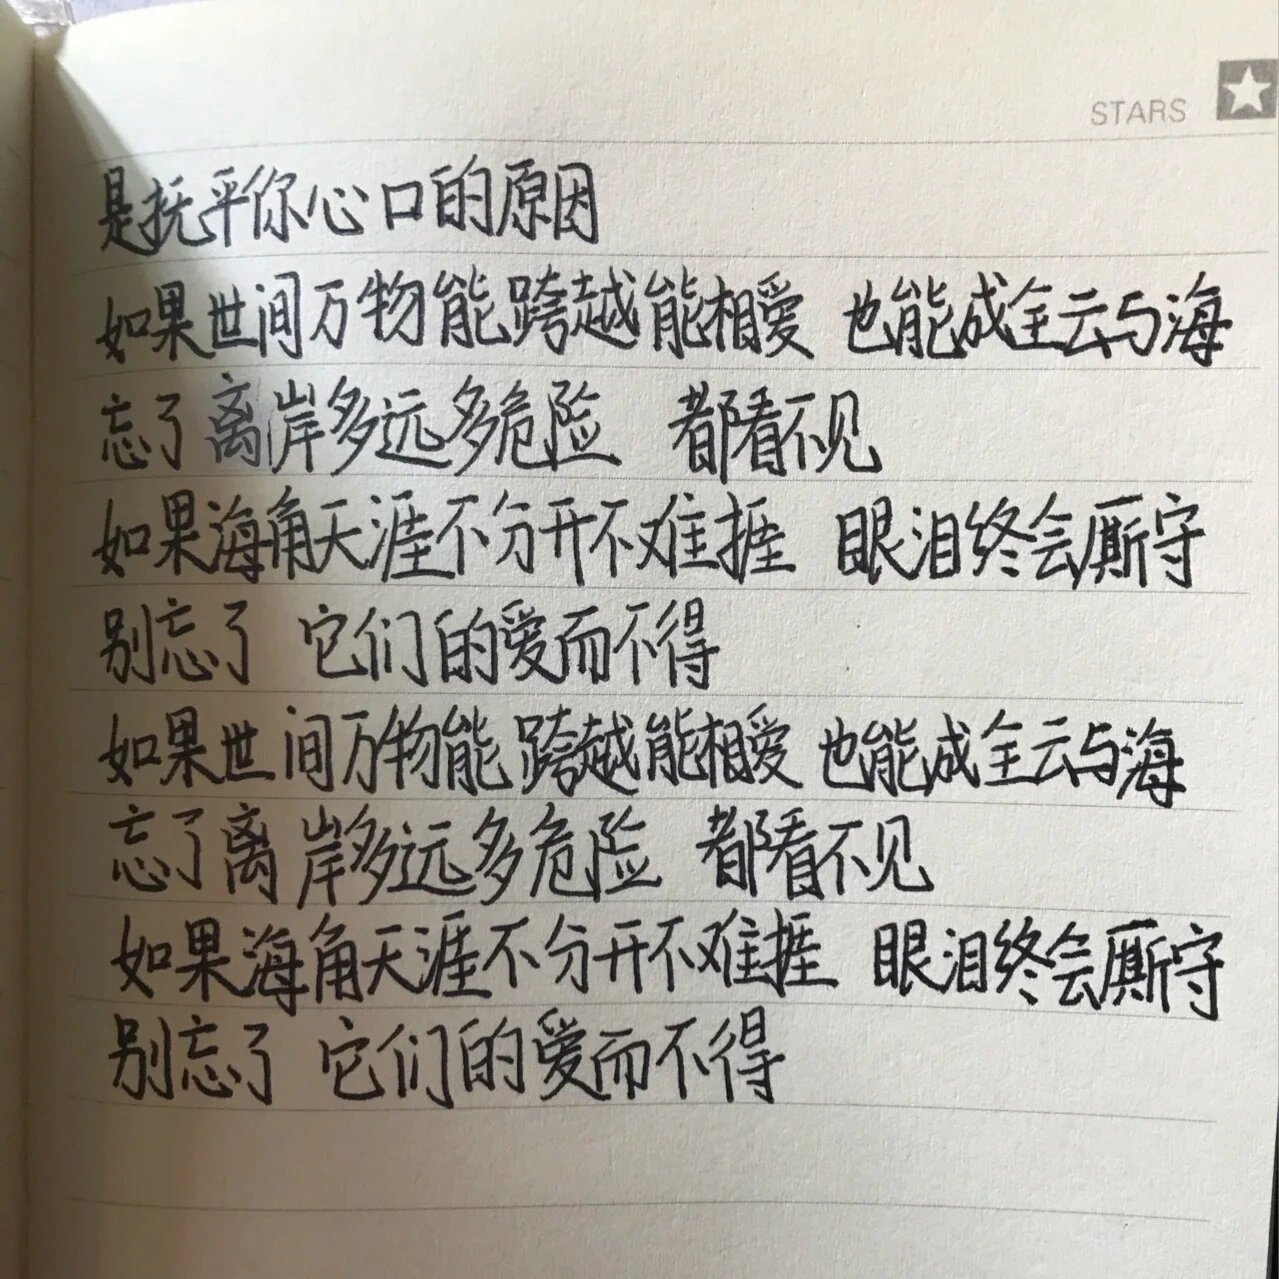 STARS
是抚平你心口的原因
如果世间万物能跨越能相爱 也能成全云与海
忘了离岸多远多危险 都看不见
如果海角天涯不分开不难捱 眼泪终会厮守
别忘了 它们的爱而不得
如果世间万物能跨越能相爱 也能成全云与海
忘了离岸多远多危险 都看不见
如果海角天涯不分开不难捱 眼泪终会厮守
别忘了 它们的爱而不得